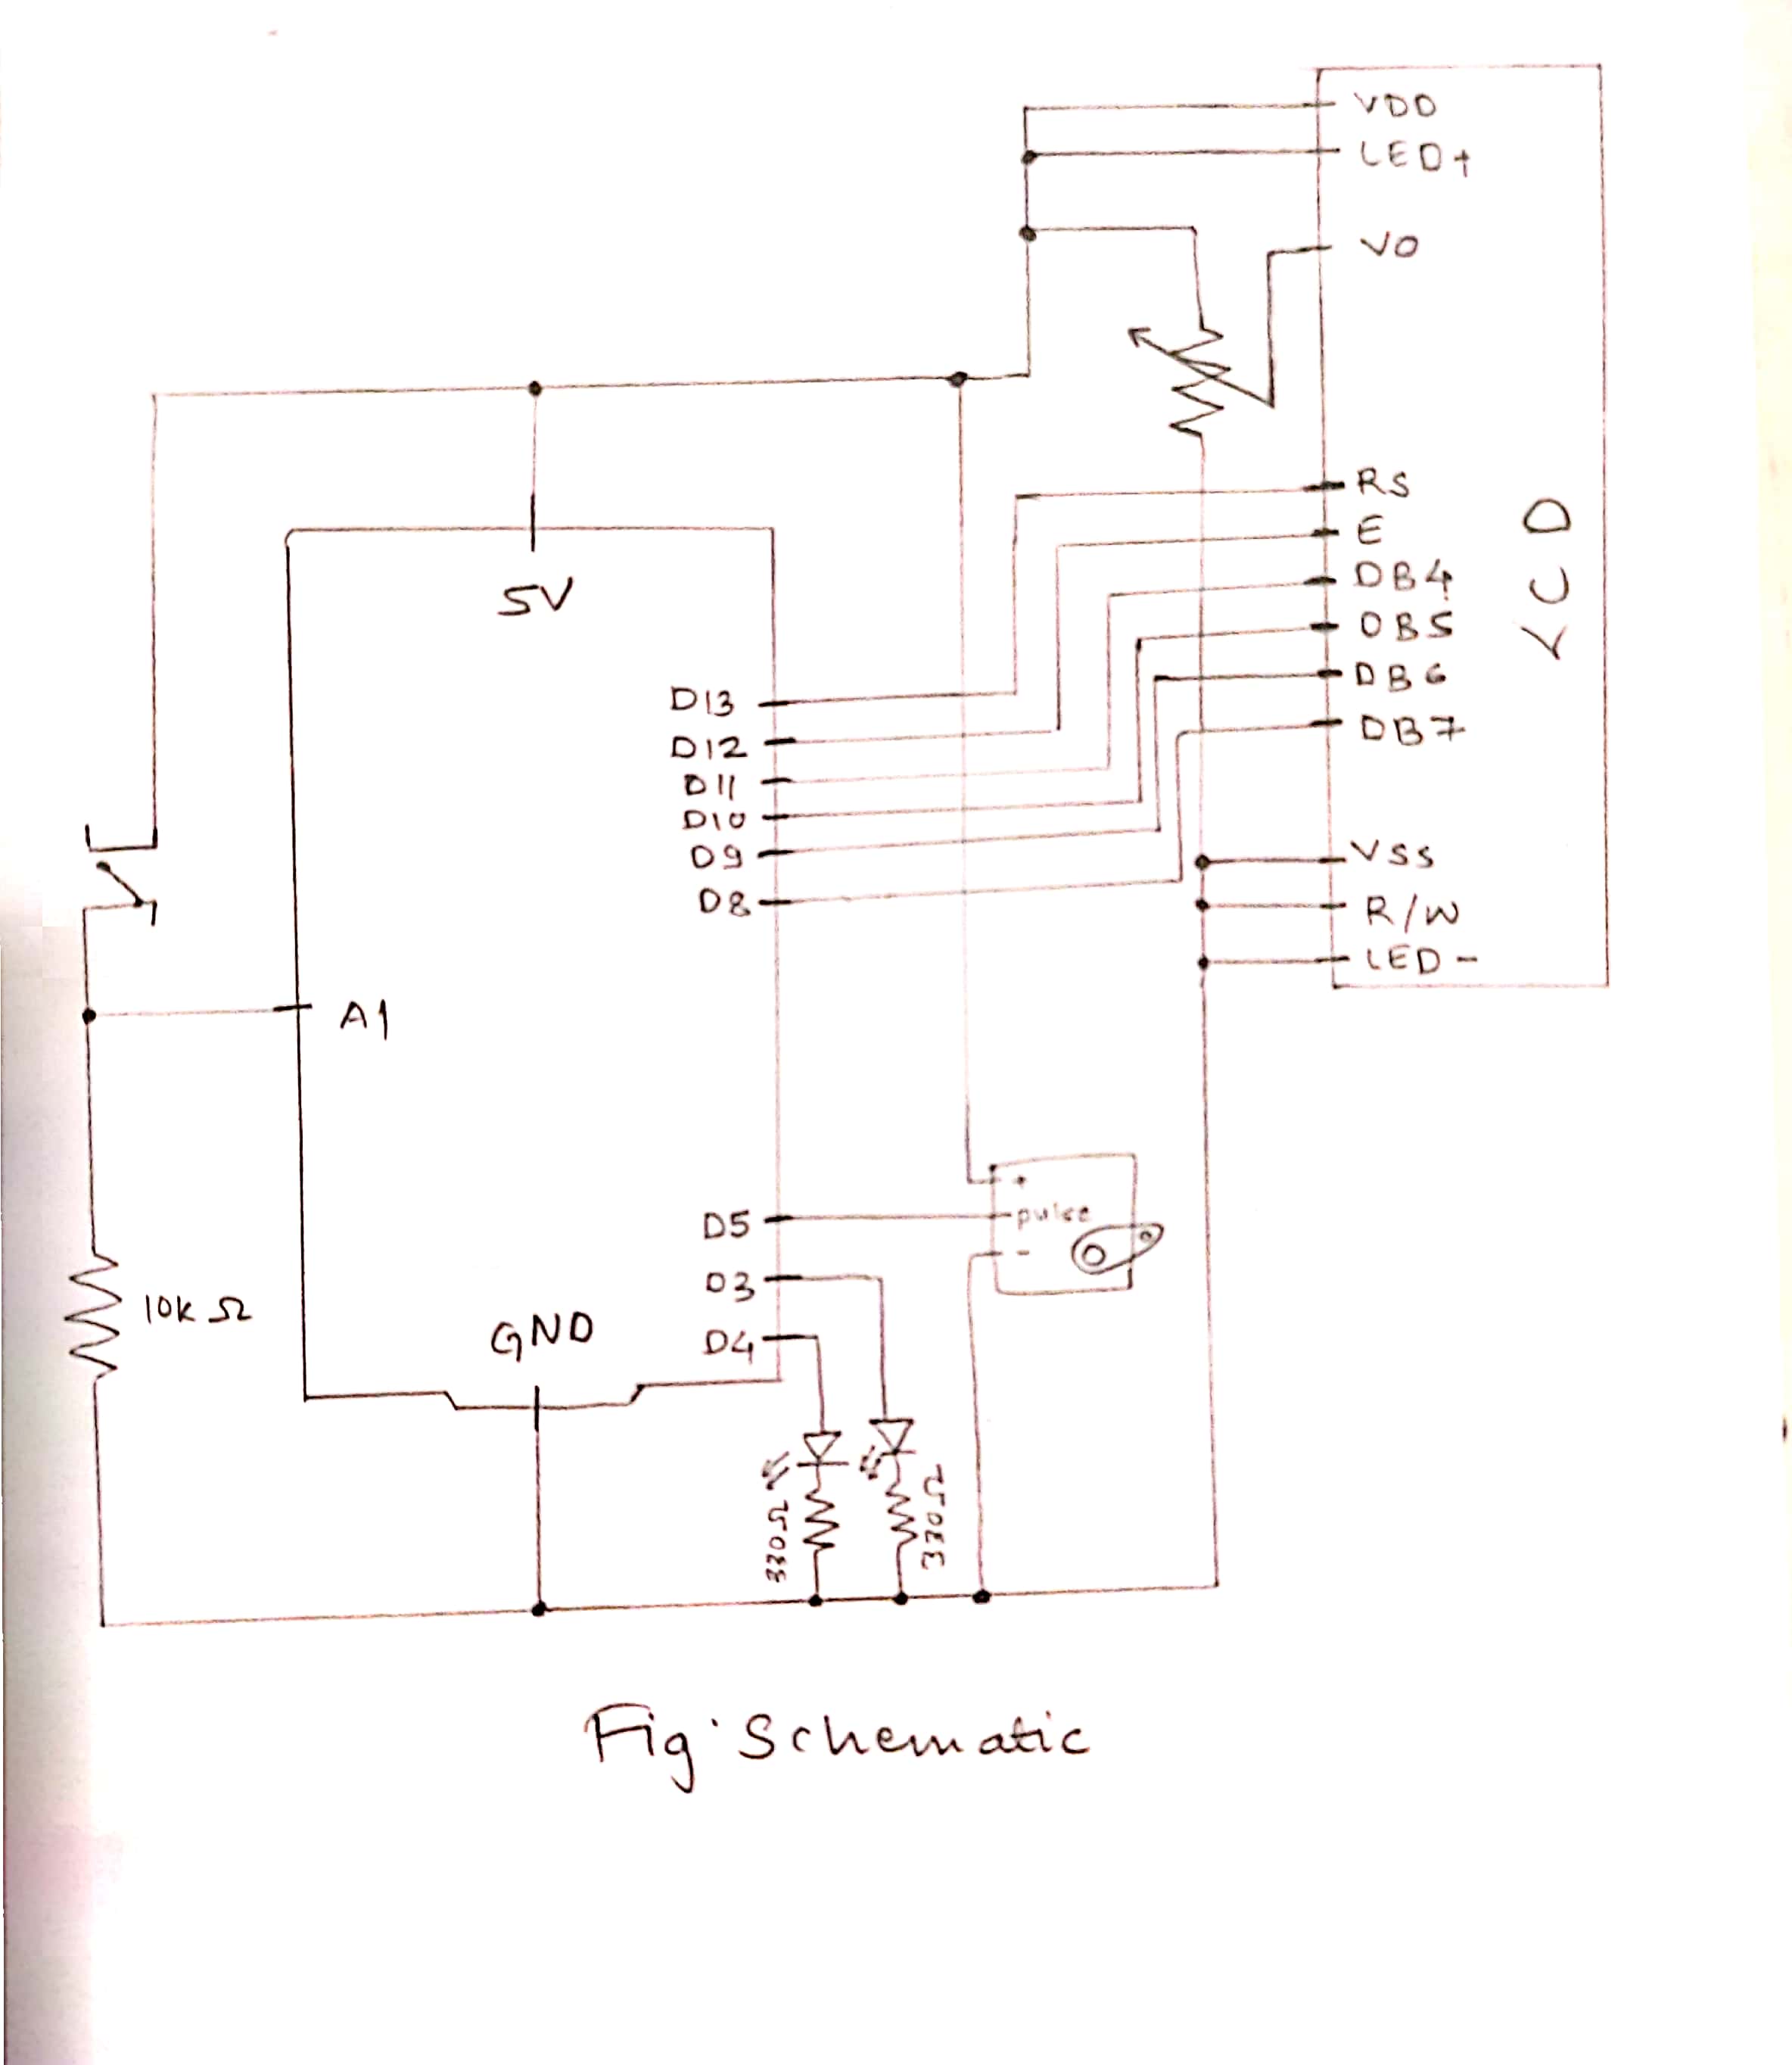 VDD
LED+
VO
RS
E
DB4
DB5
DB6
DB7
VSS
R/W
LED-
LCD
5V
D13
D12
D11
D10
D9
D8
A1
D5
D3
D4
GND
+
pulse
-
10K Ω
330Ω
330Ω
Fig: Schematic